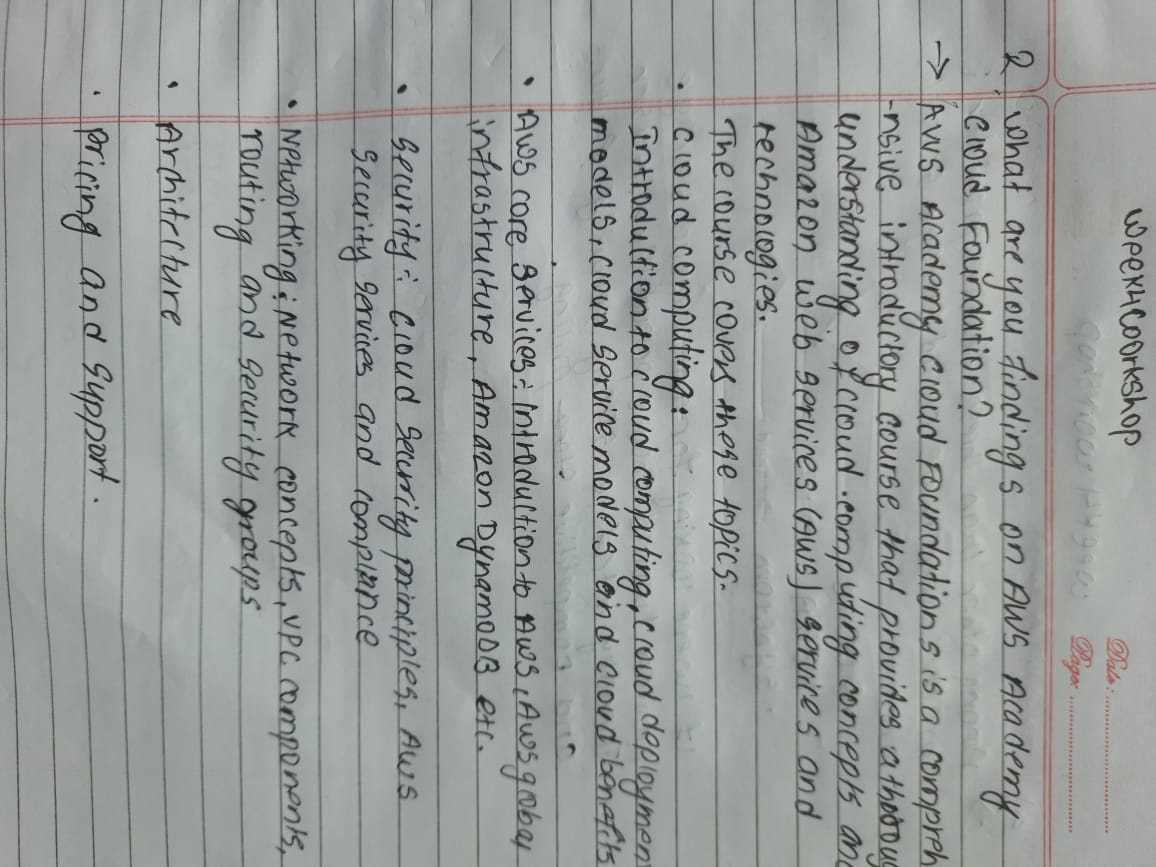 Week 4 Workshop
Date:
Page:
Q. What are you findings on AWS Academy
Cloud Foundation?
→ AWS Academy Cloud Foundations is a compreh
-nsive introductory course that provides a thoroug
understanding of cloud computing concepts and
Amazon Web Services (AWS) services and
technologies.
The course covers these topics.
• Cloud computing:
Introduction to cloud computing, cloud deploymen
models, cloud service models and cloud benefits
• AWS core services: Introduction to AWS, AWS global
infrastructure, Amazon DynamoDB etc.
• Security: Cloud security principles, AWS
security services and compliance
• Networking: Network concepts, VPC components,
routing and security groups
• Architecture
• Pricing and support.